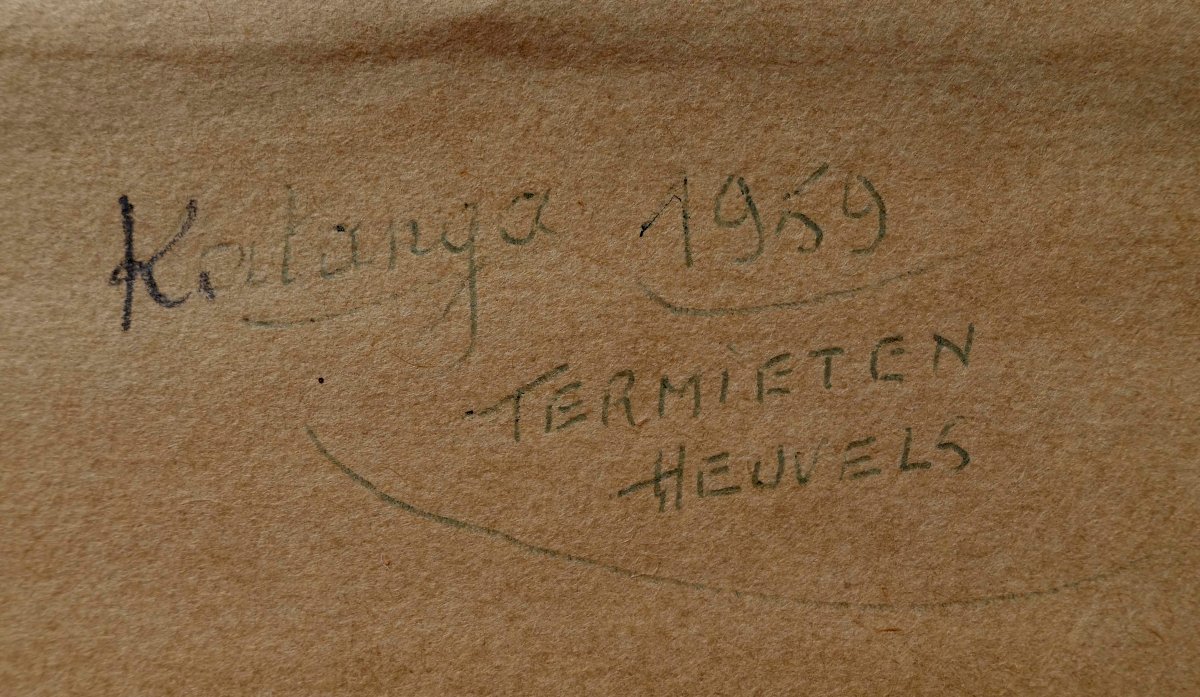 Katanga 1959
TERMIETEN
HEUVELS